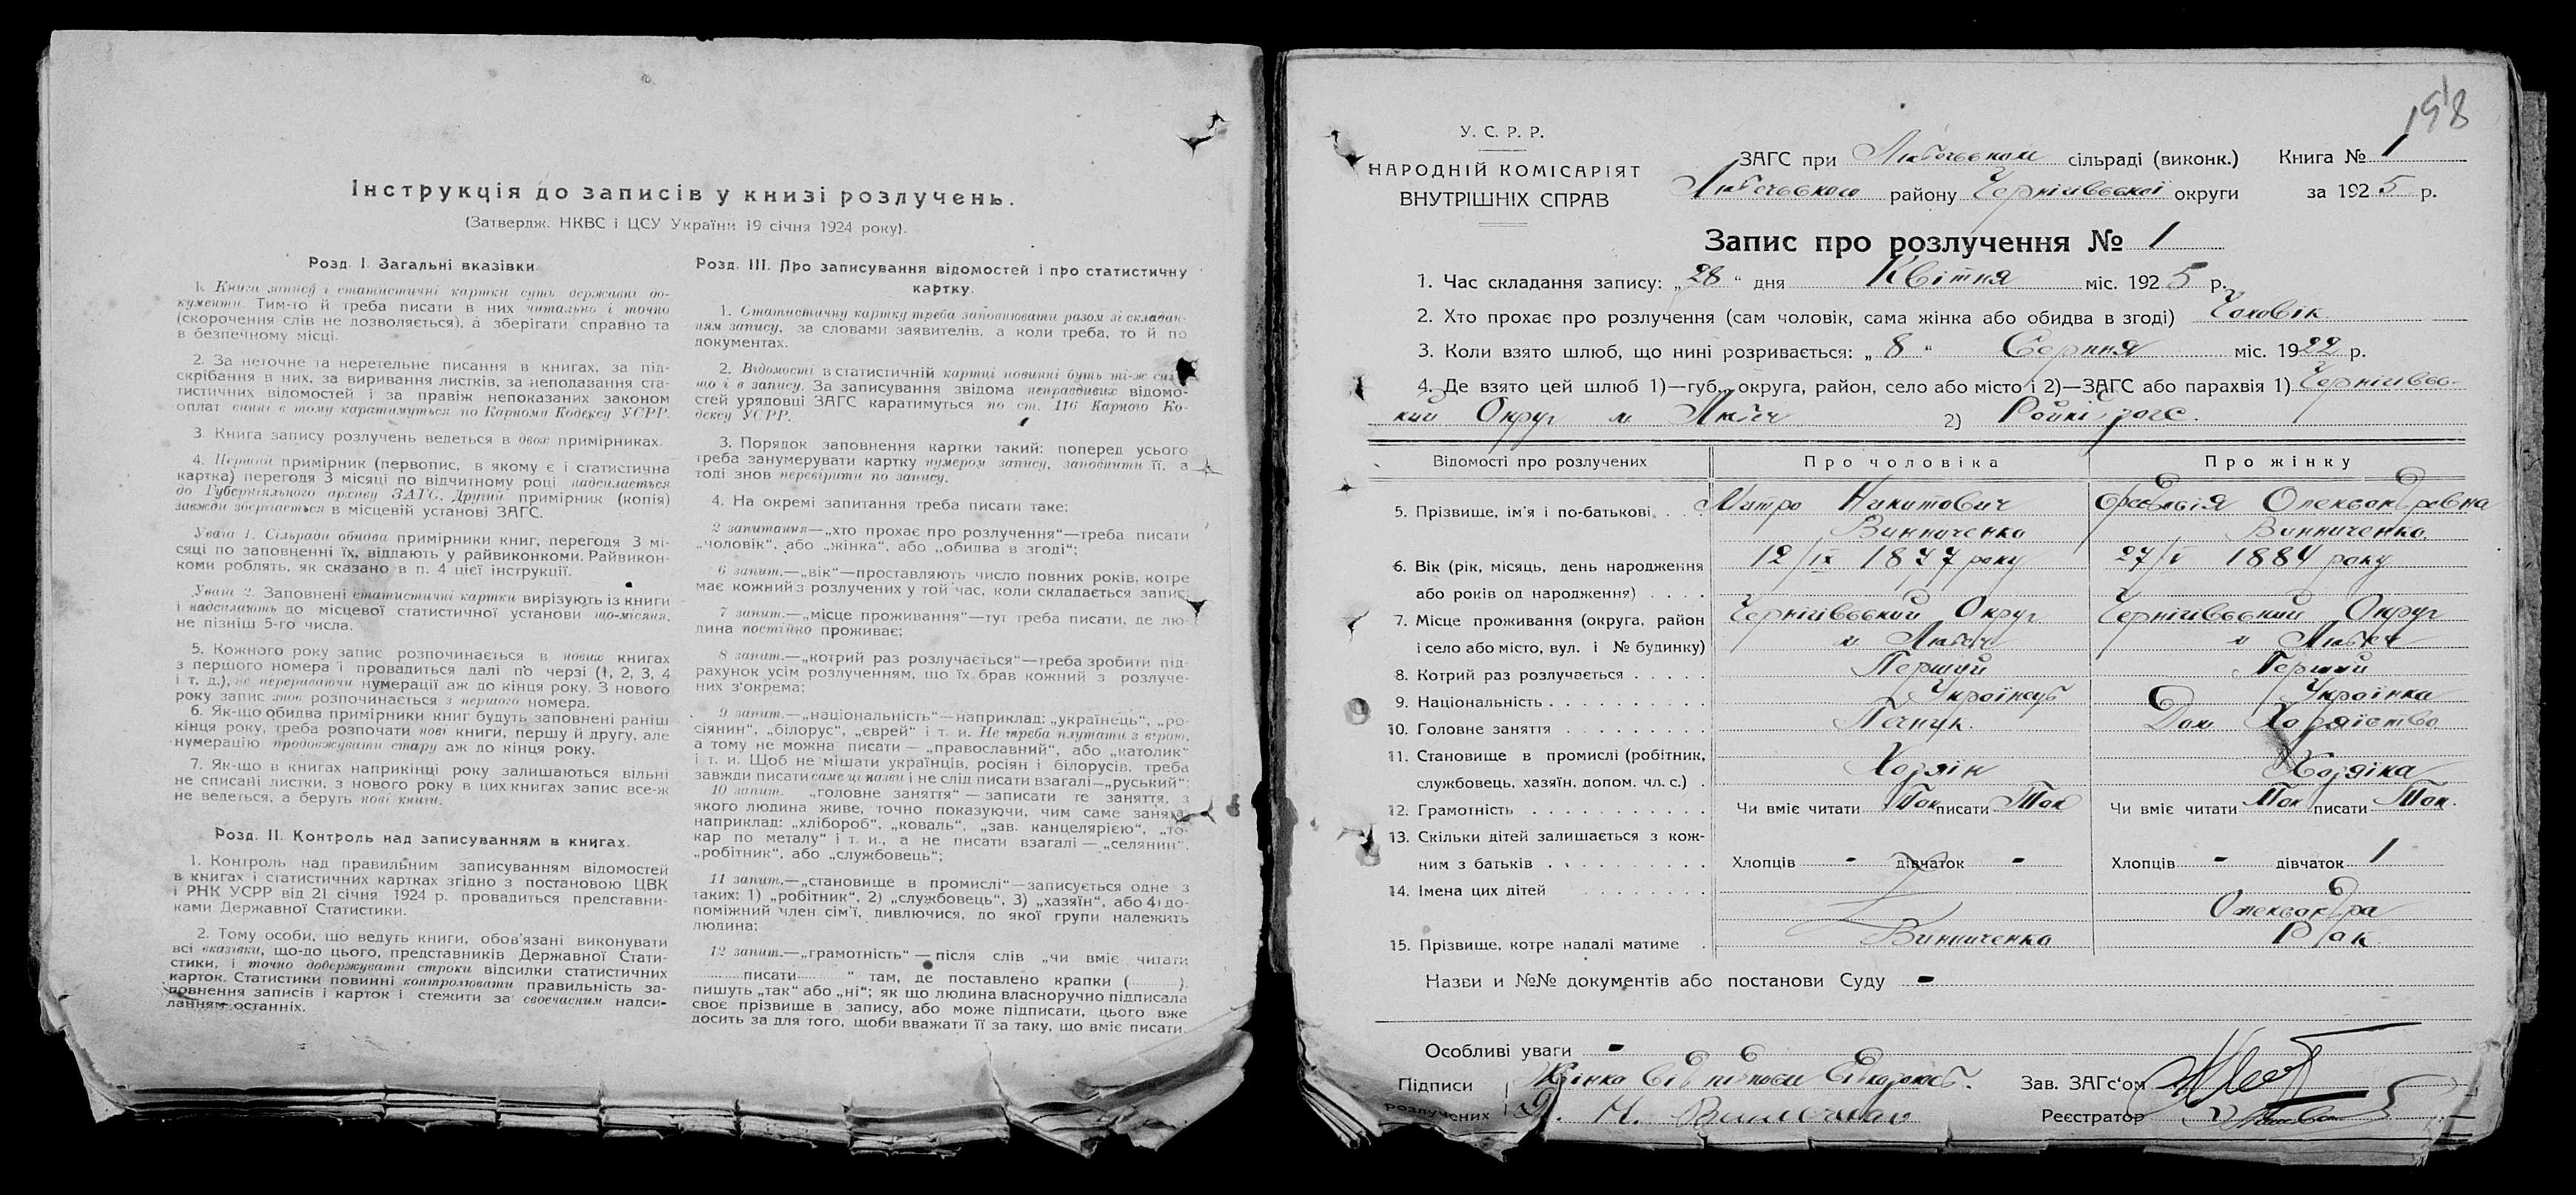 Інструкція до записів у книзі розлучень.
(Затвердж. НКВС і ЦСУ України 19 січня 1924 року).
Розд. I. Загальні вказівки.
1. Книги запису і статистичні картки суть державні до-
кументи. Тим-то й треба писати в них читально і точно
(скорочення слів не дозволяється), а зберігати справно та
в безпечному місці.
2. За неточне та неретельне писання в книгах, за під-
скрібання в них, за виривання листків, за неподавання ста-
тистичних відомостей і за правіж непоказаних законом
оплат винні в тому каратимуться по Карному Кодексу УСРР.
3. Книга запису розлучень ведеться в двох примірниках.
4. Перший примірник (первопис, в якому є і статистична
картка) перегодя 3 місяці по відчитному році надсилається
до Губерніяльного архиву ЗАГС. Другий примірник (копія)
завжди зберігається в місцевій установі ЗАГС.
Увага 1. Сільради обидва примірники книг, перегодя 3 мі-
сяці по заповненні їх, віддають у райвиконкоми. Райвикон-
коми роблять, як сказано в п. 4 цієї інструкції.
Увага 2. Заповнені статистичні картки вирізують із книги
і надсилають до місцевої статистичної установи що-місяця,
не пізніш 5-го числа.
5. Кожного року запис розпочинається в нових книгах
з першого номера і провадиться далі по черзі (1, 2, 3, 4
і т. д.), не перериваючи нумерації аж до кінця року. З нового
року запис знов розпочинається з першого номера.
6. Як-що обидва примірники книг будуть заповнені раніш
кінця року, треба розпочати нові книги, першу й другу, але
нумерацію продовжувати стару аж до кінця року.
7. Як-що в книгах наприкінці року залишаються вільні
не списані листки, з нового року в цих книгах запис все-ж
не ведеться, а беруть нові книги.
Розд. II. Контроль над записуванням в книгах.
1. Контроль над правильним записуванням відомостей
в книгах і статистичних картках згідно з постановою ЦВК
і РНК УСРР від 21 січня 1924 р. провадиться представни-
ками Державної Статистики.
2. Тому особи, що ведуть книги, обов'язані виконувати
всі вказівки, що-до цього, представників Державної Стати-
стики, і точно додержувати строки відсилки статистичних
карток. Статистики повинні контролювати правильність за-
повнення записів і карток і стежити за своєчасним надси-
ланням останніх.
Розд. III. Про записування відомостей і про статистичну
картку.
1. Статистичну картку треба заповнювати разом зі складан-
ням запису, за словами заявителів, а коли треба, то й по
документах.
2. Відомості в статистичній картці повинні буть ті-ж са
що і в запису. За записування звідома неправдивих відомо-
стей урядовці ЗАГС каратимуться по ст. 116 Карного Ко-
дексу УСРР.
3. Порядок заповнення картки такий: поперед усього
треба занумерувати картку нумером запису, заповнити її, а
тоді знов перевірити по запису.
4. На окремі запитання треба писати таке:
2 запитання—„хто прохає про розлучення“—треба писати
„чоловік“, або „жінка“, або „обидва в згоді“;
6 запит.—„вік“—проставляють число повних років, котре
має кожний з розлучених у той час, коли складається запис;
7 запит.—„місце проживання“—тут треба писати, де лю-
дина постійно проживає;
8 запит.—„котрий раз розлучається“—треба зробити під-
рахунок усім розлученням, що їх брав кожний з розлуче-
них з'окрема;
9 запит.—„національність“—наприклад: „українець“, „ро-
сіянин“, „білорус“, „єврей“ і т. и. Не треба плутати з вірою,
а тому не можна писати — „православний“, або „католик“
і т. и. Щоб не мішати українців, росіян і білорусів, треба
завжди писати саме ці назви і не слід писати взагалі—„руський“;
10 запит. „головне заняття“ — записати те заняття, з
якого людина живе, точно показуючи, чим саме занята,
наприклад: „хлібороб“, „коваль“, „зав. канцелярією“, „то-
кар по металу“ і т. и., а не писати взагалі — „селянин“,
„робітник“, або „службовець“;
11 запит.—„становище в промислі“—записується одне з
таких: 1) „робітник“, 2) „службовець“, 3) „хазяїн“, або 4) до-
поміжний член сім'ї, дивлючися, до якої групи належить
людина;
12 запит.—„грамотність“ — після слів „чи вміє читати
писати “ там, де поставлено крапки ( ).
пишуть „так“ або „ні“; як що людина власноручно підписала
своє прізвище в запису, або може підписати, цього вже
досить за для того, щоби вважати її за таку, що вміє писати.
198
У. С. Р. Р.
НАРОДНІЙ КОМІСАРІЯТ
ВНУТРІШНІХ СПРАВ
ЗАГС при Любечьском сільраді (виконк.) Книга № 1
Любечьського району Чернігівської округи за 1925 р.
Запис про розлучення № 1
1. Час складання запису: „28“ дня Квітня міс. 1925 р.
2. Хто прохає про розлучення (сам чоловік, сама жінка або обидва в згоді) Чоловік
3. Коли взято шлюб, що нині розривається: „8“ Серпня міс. 1922 р.
4. Де взято цей шлюб 1)—губ., округа, район, село або місто і 2)—ЗАГС або парахвія 1) Чернігівсь-
кий Округ м. Любеч 2) Райзагс.
Відомості про розлучених Про чоловіка Про жінку
5. Прізвище, ім'я і по-батькові. Митро Никитович Олександровна
Винниченко Винниченко
6. Вік (рік, місяць, день народження 12/ІХ 1877 року 27/V 1884 року
або років од народження)
7. Місце проживання (округа, район Чернігівський Округ Чернігівський Округ
і село або місто, вул. і № будинку) м Любеч м Любеч
8. Котрий раз розлучається Перший Перший
9. Національність Українець Українка
10. Головне заняття Печник. Дом Хозяйство
11. Становище в промислі (робітник,
службовець, хазяїн, допом. чл. с.) Хозяін Хозяіка
12. Грамотність Чи вміє читати Так писати Так Чи вміє читати Так писати Так.
13. Скільки дітей залишається з кож-
ним з батьків Хлопців - дівчаток - Хлопців - дівчаток 1
14. Імена цих дітей
Олександра
15. Прізвище, котре надалі матиме Винниченко Рак
Назви и №№ документів або постанови Суду -
Особливі уваги -
Підписи Жінка від підписи Зав. ЗАГс'ом
Розлучених Реєстратор